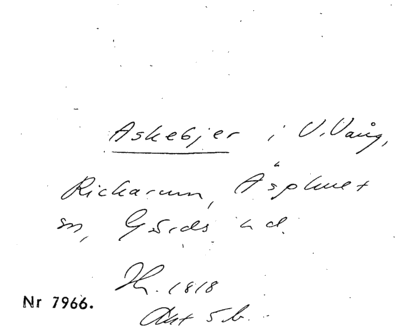 Askebjer i V. Vång,
Rickarum, Äsphult
sn, Gärds hd.
Hr. 1818
Akt 5 b.
Nr 7966.